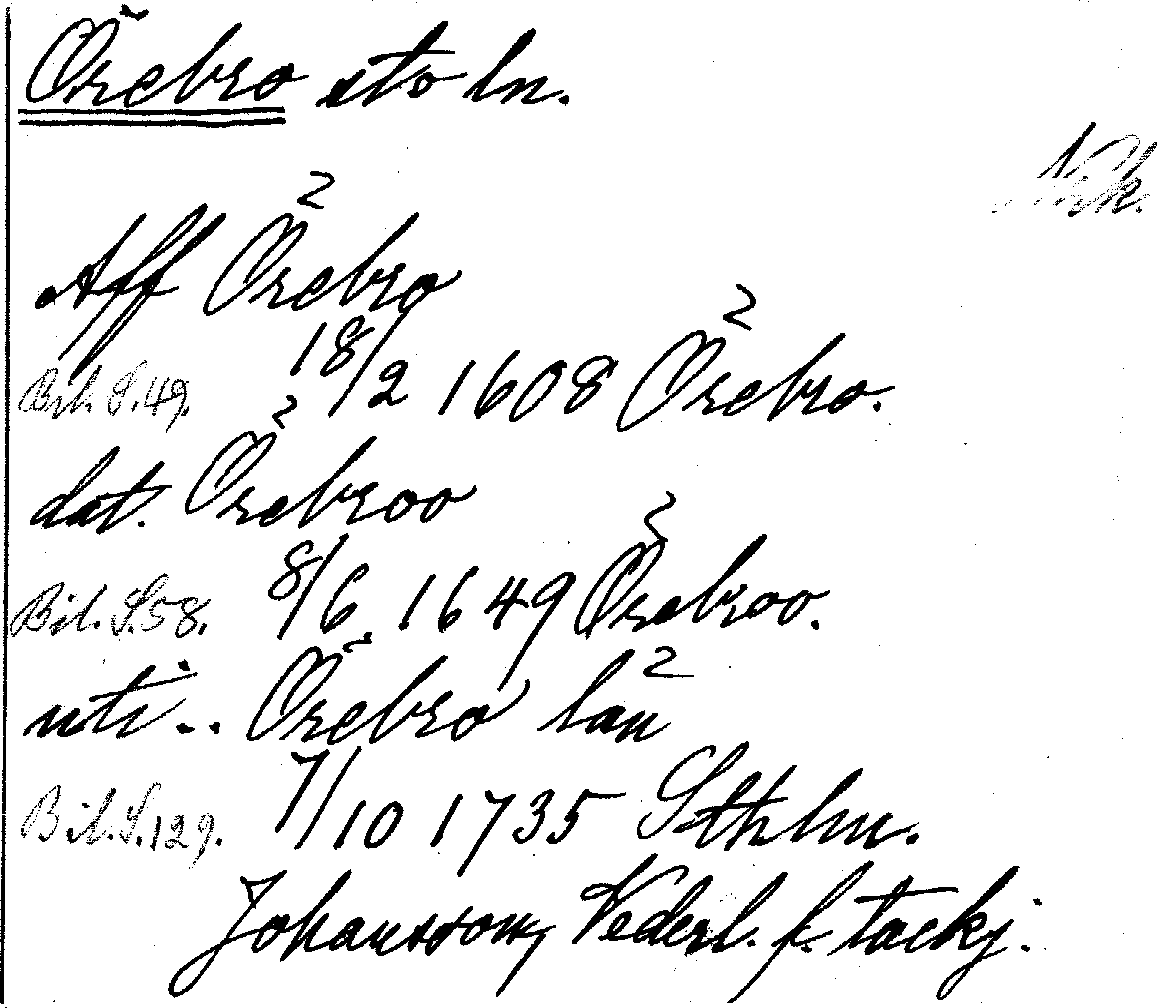 Örebro sto ln.
Nrk.
2
Aff Örebro
2
Bil. S.49. 18/2 1608 Örebro.
2
dat. Örebroo
2
Bil. S.58. 8/6 1649 Örebroo.
uti .. Örebro län
Bil. S.129. 7/10 1735 Sthlm.
Johansson, Vederl. f. tackj.